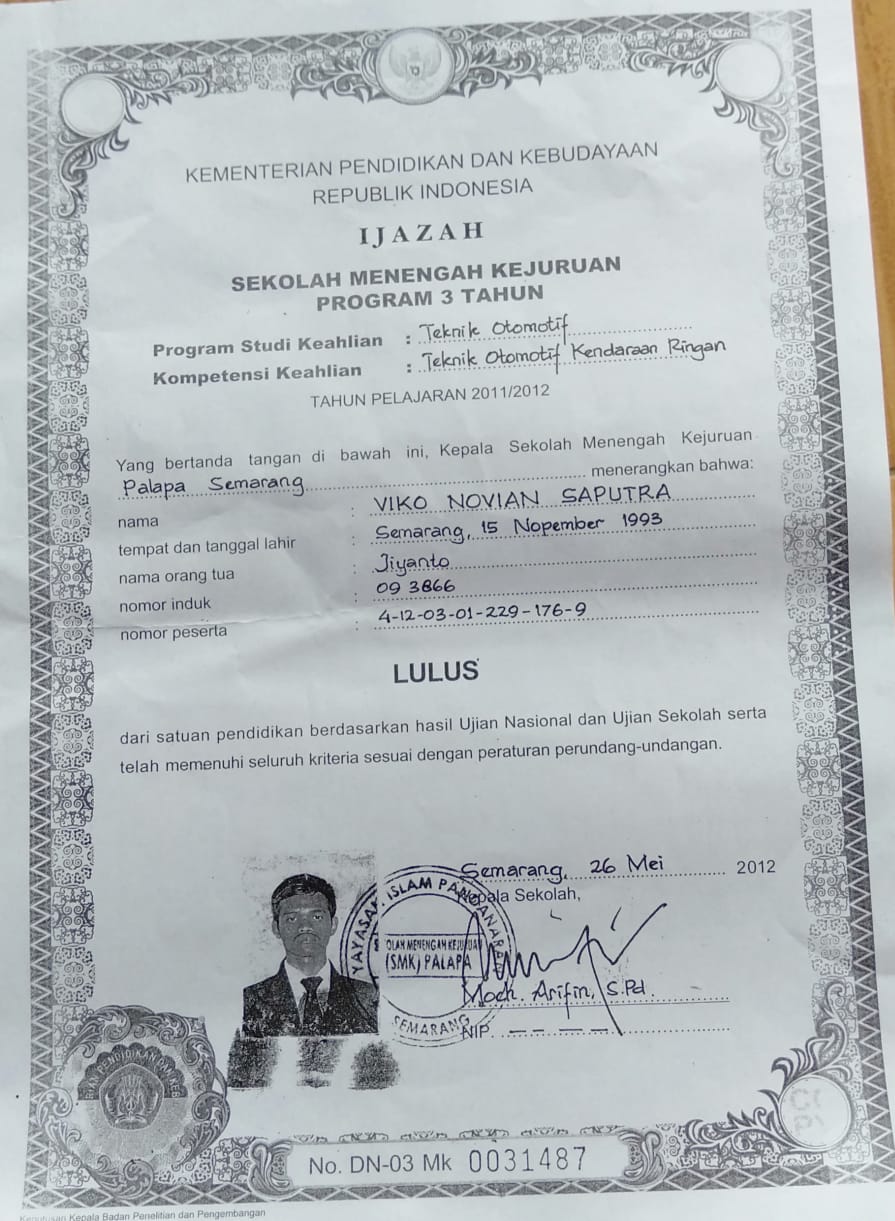 KEMENTERIAN PENDIDIKAN DAN KEBUDAYAAN
REPUBLIK INDONESIA
IJAZAH
SEKOLAH MENENGAH KEJURUAN
PROGRAM 3 TAHUN
Program Studi Keahlian : Teknik Otomotif
Kompetensi Keahlian : Teknik Otomotif Kendaraan Ringan
TAHUN PELAJARAN 2011/2012
Yang bertanda tangan di bawah ini, Kepala Sekolah Menengah Kejuruan
Palapa Semarang menerangkan bahwa:
nama : VIKO NOVIAN SAPUTRA
tempat dan tanggal lahir : Semarang, 15 Nopember 1993
nama orang tua : Jiyanto
nomor induk : 09 3866
nomor peserta : 4-12-03-01-229-176-9
LULUS
dari satuan pendidikan berdasarkan hasil Ujian Nasional dan Ujian Sekolah serta
telah memenuhi seluruh kriteria sesuai dengan peraturan perundang-undangan.
Semarang, 26 Mei 2012
Kepala Sekolah,
YAYASAN ISLAM
OLAH MENENGAH KEJURUAN
(SMK) PALAPA
SEMARANG
Moch. Arifin, S.Pd.
NIP. — — — —
No. DN-03 Mk 0031487
Keputusan Kepala Badan Penelitian dan Pengembangan